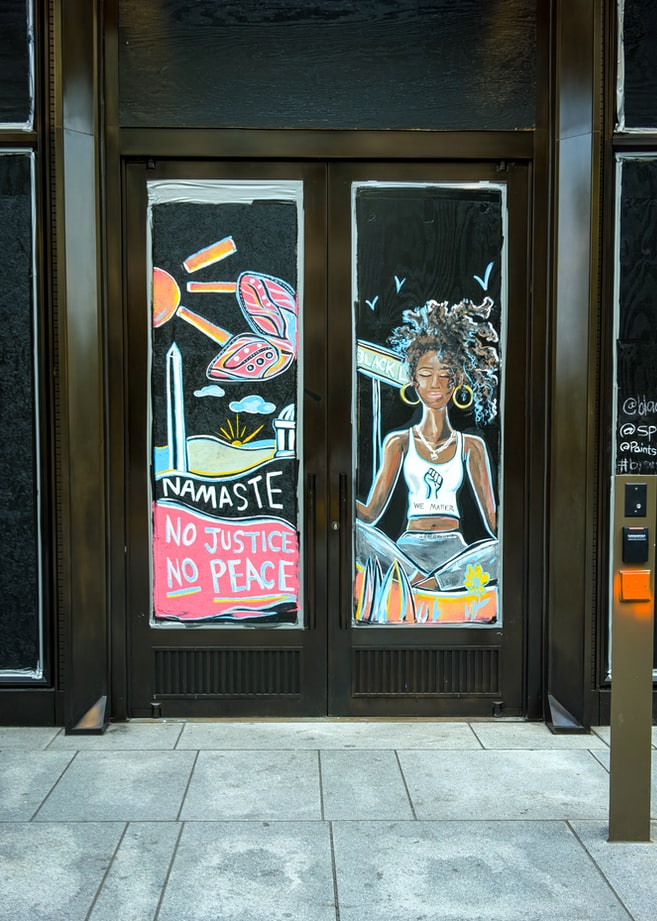 NAMASTE
NO JUSTICE
NO PEACE
BLACK L
WE MATTER
@SP
@Paints